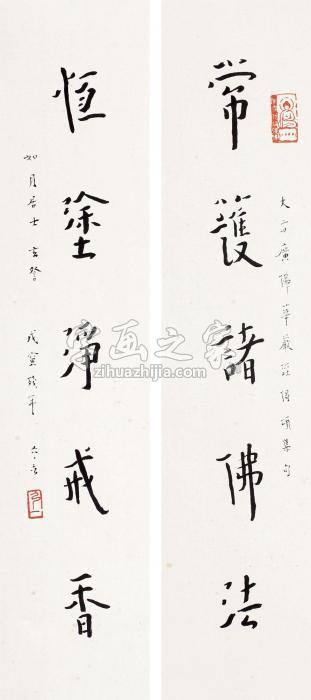 大方廣佛華嚴經偈頌集句
常護諸佛法
恒塗淨戒香
如月居士
戊寅殘年
字画之家
zihuazhijia.com